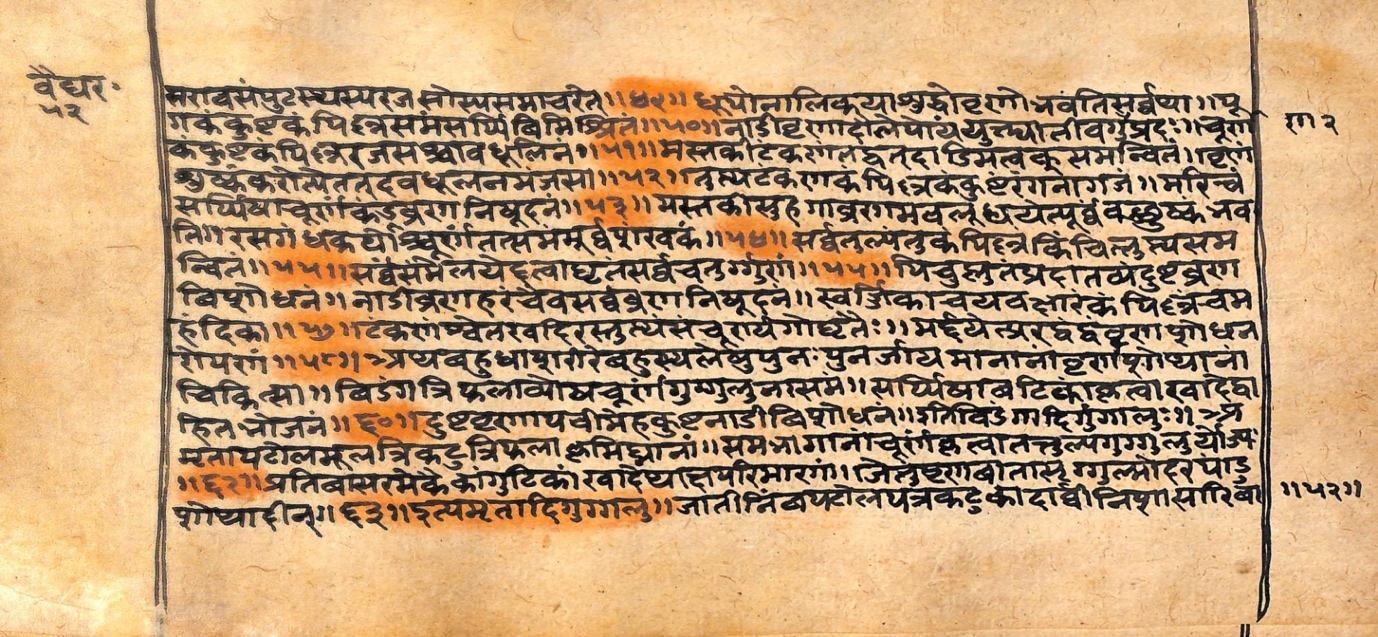 वैद्यर॰
५२
सरावसंपुटस्थस्यरज सोस्यसमाचरेत्॥४९॥ धूपोनालिकयाशुद्धोव्रणोभवंतिसर्वथा॥पू
गकंकुष्टकंपिल्लसमंसर्प्पिविमिश्रितं॥५०॥नाडीव्रणादालेपोयं
रण २
ककुष्टकपिल्लरजसश्चावधूलिनं॥५१॥मस्तकीटंकणंतद्वतदाडिमत्वकुसमन्वितं॥वृणं
शुष्कंकरोत्येतत्तदवधूलनमंजसा॥५२॥तुत्थटंकणकंपिल्लकंकुष्टंरंगनागजं॥मरिचं
सर्प्पिषाचूर्णकंडूव्रण निषूदनं॥५३॥ मस्तकी व्रणमवलू वत्शुष्कं भव
ति॥रसगंधकयोश्चूर्णंतत्समंमूर्द्धशंखकं॥५४॥सर्वतुल्यंतुकंपिल्लंकिंचित्तुत्थसम
न्वितं॥५५॥सर्वंसंमेलयेद्दत्वाघृतंसर्वचतुर्ग्गुणं॥५५॥पिचुप्लुतंप्रदातव्यंदुष्टव्रण
विशोधनं॥नाडीव्रणहरंचैवसर्वव्रण निषूदनं॥स्वर्जिकाचयवक्षारंकंपिल्लंचम
हंदिका॥५७॥टंकणश्वेतखदिरस्तुत्थंसंचूर्णयगोघृतैः॥मर्द्दये व्रणशोधन
रोपणं॥५८॥अथबहुधाशारीरेबहुस्थलेषुपुनःपुनर्जायमानानांव्रणशोथाना
चिकित्सा॥विडंगत्रिफलाव्योषचूर्णंगुग्गुलुनासमं॥सर्प्पिषावटिकांकृत्वाखादेद्वा
हितभोजनं॥६०॥दुष्टव्रणापचीमेहकुष्टनाडीविशोधनं॥इतिविडंगादिगुंगालुः॥अ
मृतापटोलमूलत्रिकटुत्रिफलाकृमिघ्नानां॥समभागानांचूर्णंकृत्वातत्तुल्यगुग्गुलुर्योज्यः
॥६२॥प्रतिवासरमेकैकांगुटिकांखादेथाक्षपरिमाणां॥जेतुंव्रणवातासृग्गुल्मोदरपांडु
शोथादीन्॥६३॥इत्यमृतादिगुग्गलु॥जातीनिंबपटोलपत्रकटुकादार्वीनिशासारिवा
॥५२॥